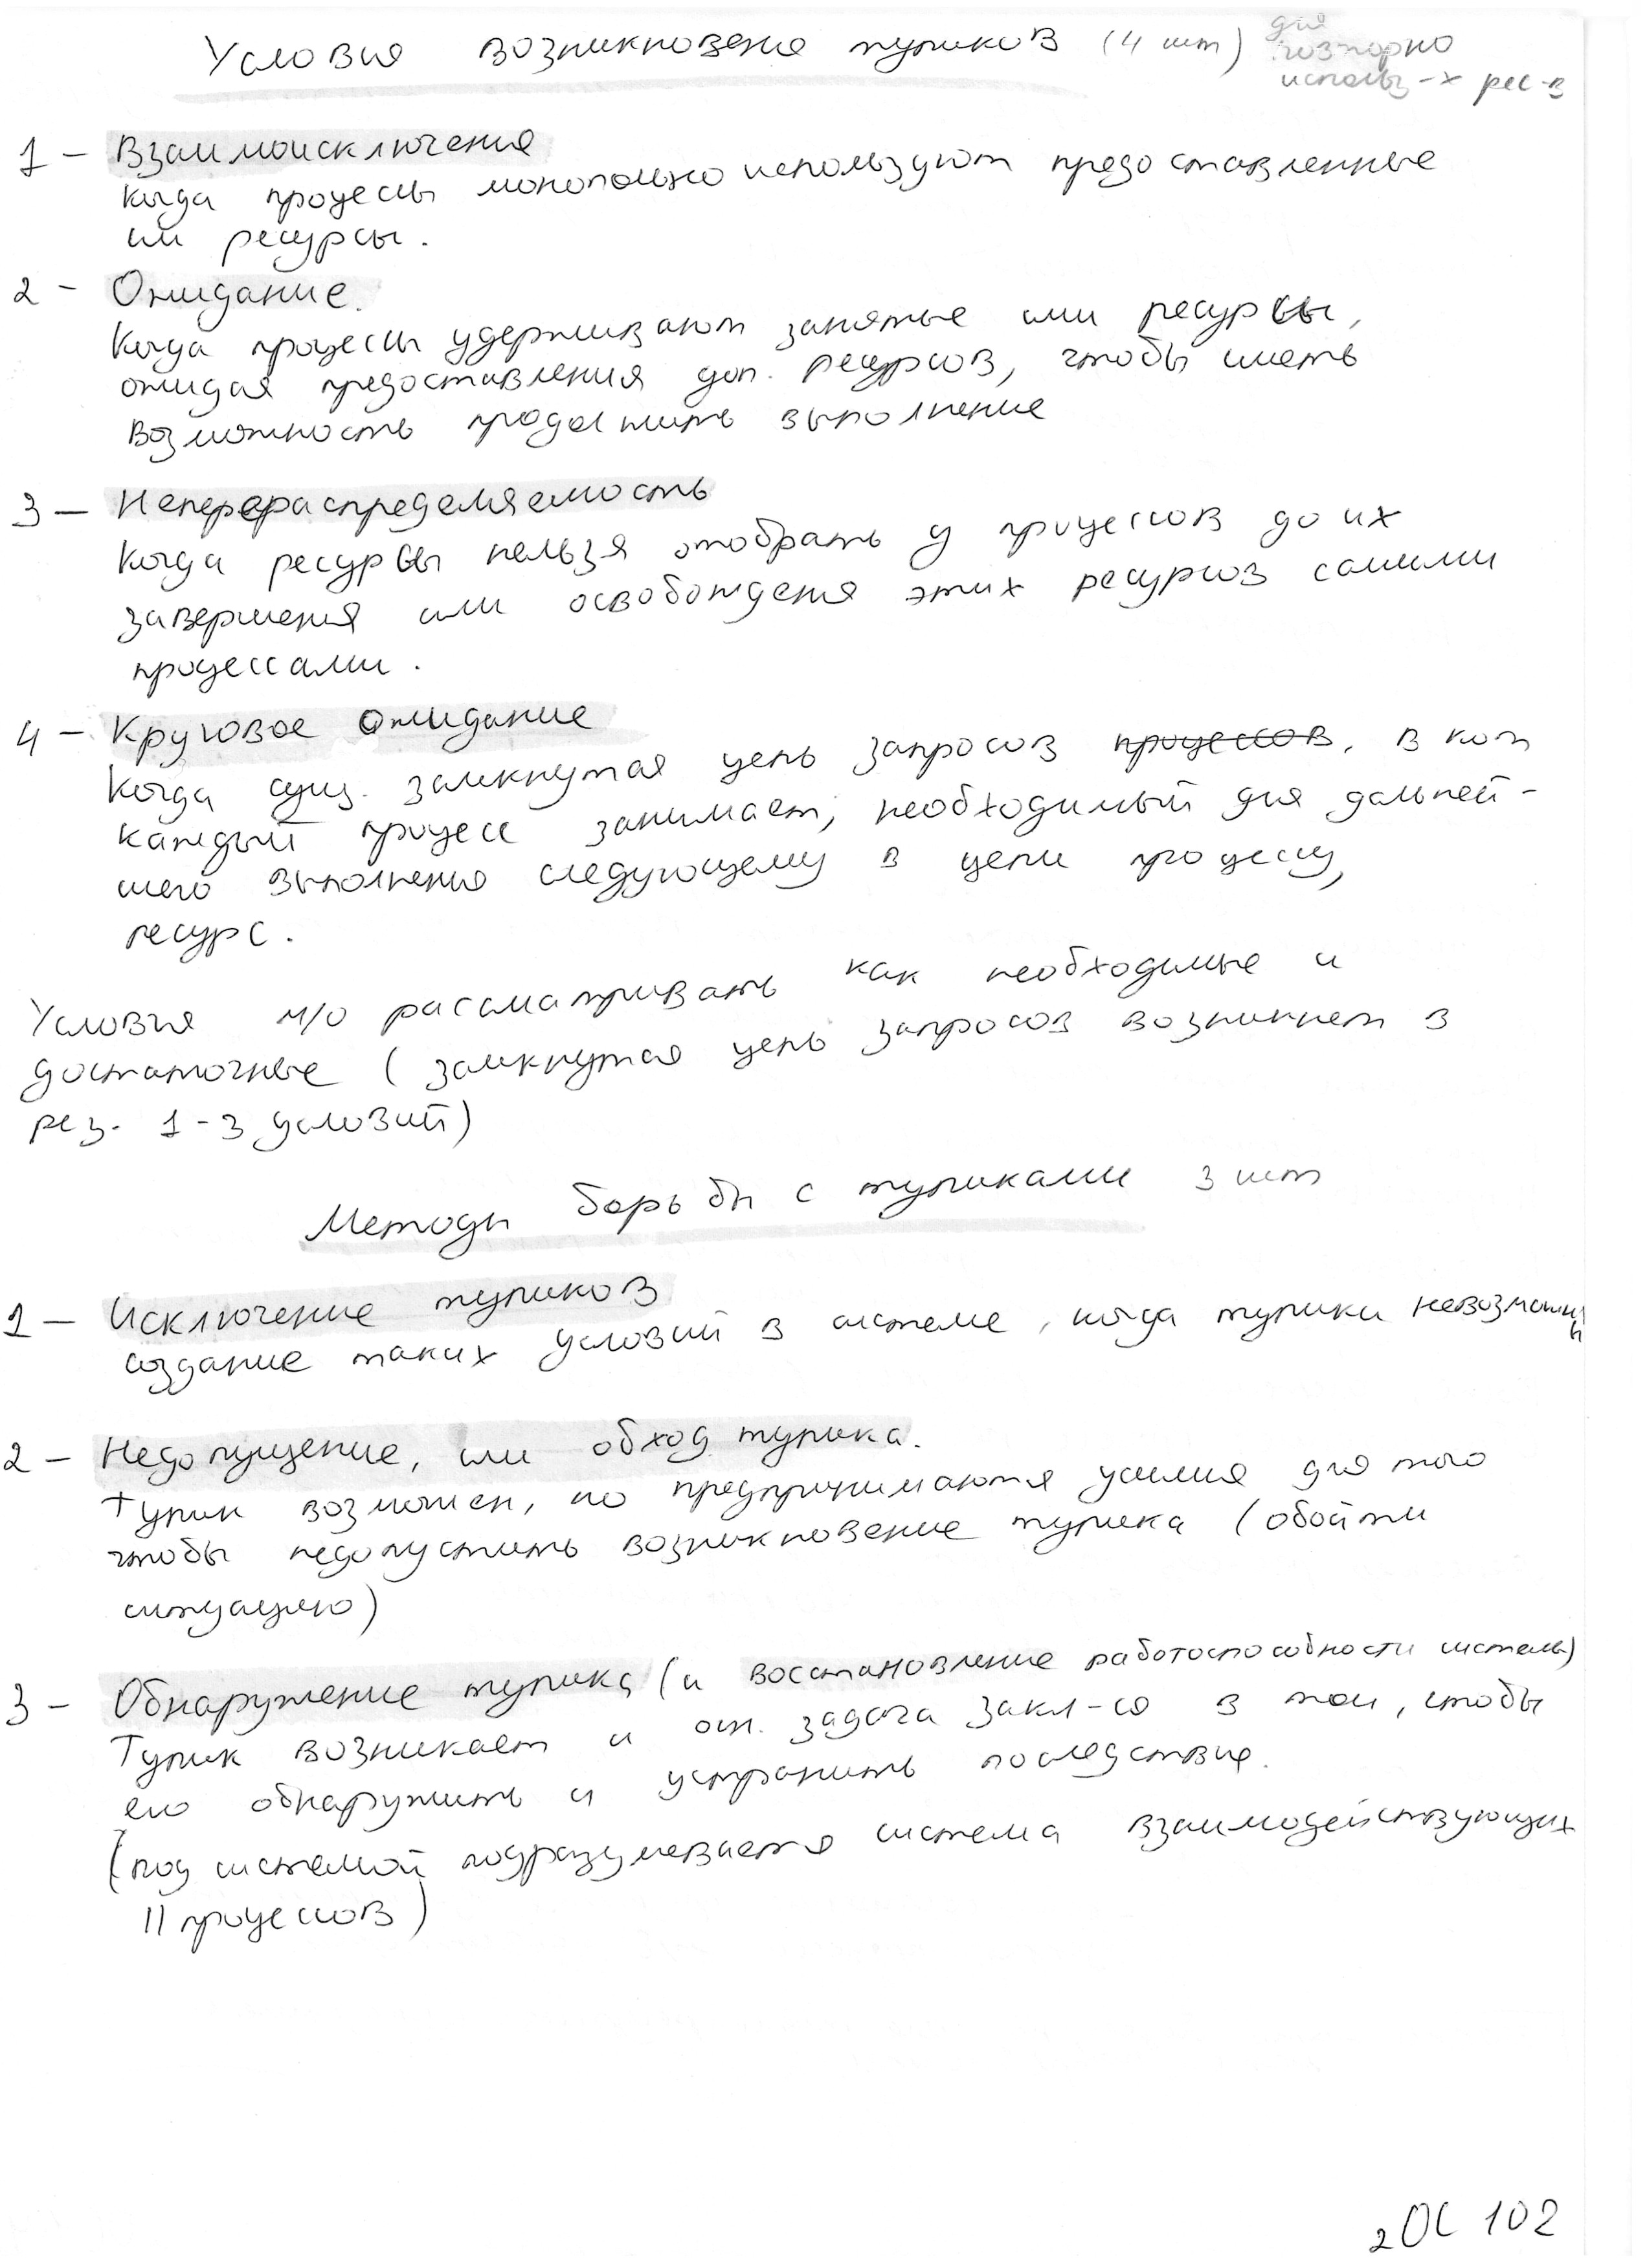 Условия возникновения тупиков (4 шт) для
повторно
использ-х рес-в
1 - Взаимоисключения
когда процессы монопольно используют предоставленные
им ресурсы.
2 - Ожидание.
Когда процессы удерживают занятые ими ресурсы,
ожидая предоставления доп. ресурсов, чтобы иметь
возможность продолжить выполнение
3 - Неперераспределяемость
когда ресурсы нельзя отобрать у процессов до их
завершения или освобождения этих ресурсов самими
процессами.
4 - Круговое ожидание
Когда сущ. замкнутая цепь запросов процессов, в кот
каждый процесс занимает, необходимый для дальней-
шего выполнения следующему в цепи процессу,
ресурс.
Условия м/о рассматривать как необходимые и
достаточные (замкнутая цепь запросов возникнет в
рез. 1-3 условий)
Методы борьбы с тупиками 3 шт
1 - Исключение тупиков
создание таких условий в системе, когда тупики невозможны
2 - Недопущение, или обход тупика.
Тупик возможен, но предпринимаются усилия для того
чтобы недопустить возникновение тупика (обойти
ситуацию)
3 - Обнаружение тупика (и восстановление работоспособности системы)
Тупик возникает и осн. задача закл-ся в том, чтобы
его обнаружить и устранить последствия.
(под системой подразумевается система взаимодействующих
|| процессов)
2 ОС 102